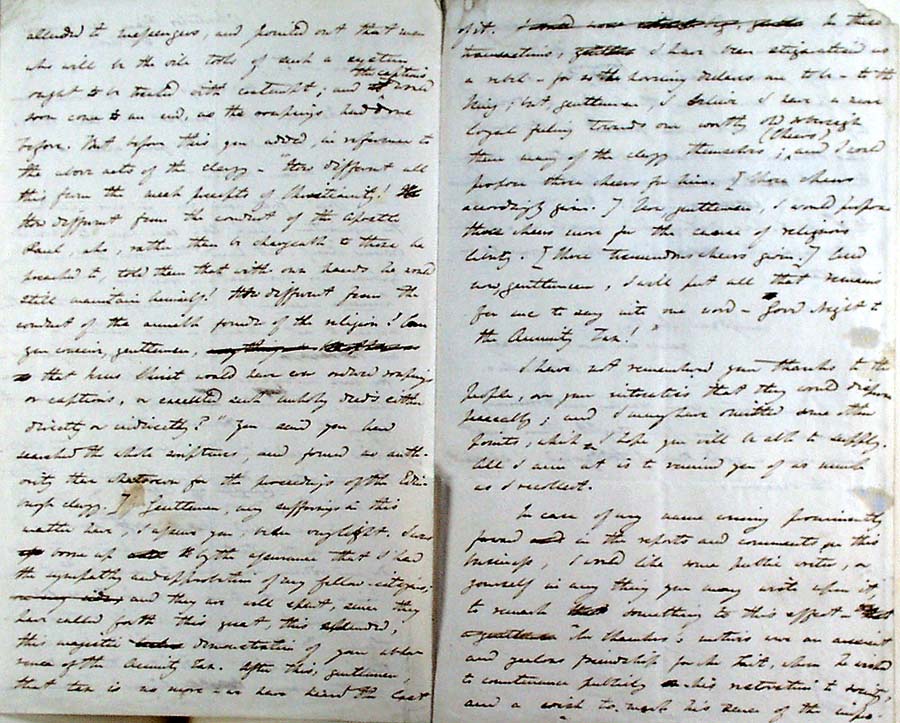 alluded to messengers, and pointed out that men
who will be the vile tools of such a system
ought to be treated with contempt; and the captions would
soon come to an end, as the roupings had done
before. But before this you added, in reference to
the above acts of the clergy - "How different all
this from the meek precepts of Christianity!
How different from the conduct of the Apostle
Paul, who, rather than be chargeable to those he
preached to, told them that with own hands he would
still maintain himself! How different from the
conduct of the founder of the religion! Can
you conceive, gentlemen,
that Jesus Christ would have ever ordered roupings
or captions, or executed such unholy deeds either
directly or indirectly?" You said you had
searched the whole scriptures, and found no auth-
ority there for the proceedings of the Edin-
burgh clergy. Gentlemen, my sufferings in this
matter have, I assure you, been I was
borne up by the assurance that I had
the sympathy and approbation of my fellow-citizens,
and they are well spent, since they
have called forth this great, this splendid,
this majestic demonstration of your abhor-
rence of the Annuity Tax. After this, gentlemen,
that tax is no more - we have heard the last
of it. In these
transactions, I have been stigmatised as
a rebel - for so the horning declares me to be - to the
King; but, gentlemen, I believe I have a more
loyal feeling towards our worthy old sovereign
than many of the clergy themselves; (Cheers) and I would
propose three cheers for him. [Three cheers
accordingly given.] Now gentlemen, I would propose
three cheers more for the cause of religious
liberty. [Three tremendous cheers given.] And
now, gentlemen, I will put all that remains
for me to say into one word - Good Night to
the Annuity Tax!"
I have not remembered your thanks to the
people, or your intreaties that they would disperse
peaceably; and I may have omitted some other
points, which I hope you will be able to supply.
All I aim at is to remind you of as much
as I recollect.
In case of my name coming prominently
forward in the reports and comments on this
business, I would like some public writer, or
yourself in any thing you may write upon it,
to remark something to this effect -
Mr Chambers's motives were an ancient
and zealous friendship for Mr Tait, whom he wished
to countenance publicly on his restoration to society,
and a wish to mark his sense of the